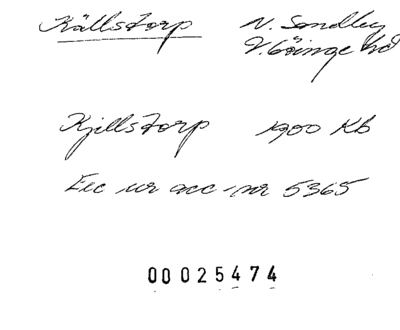 Källstorp N. Sandby
V. Göinge hd
Kjellstorp 1900 Kb
Exc ur acc-nr 5365
00025474